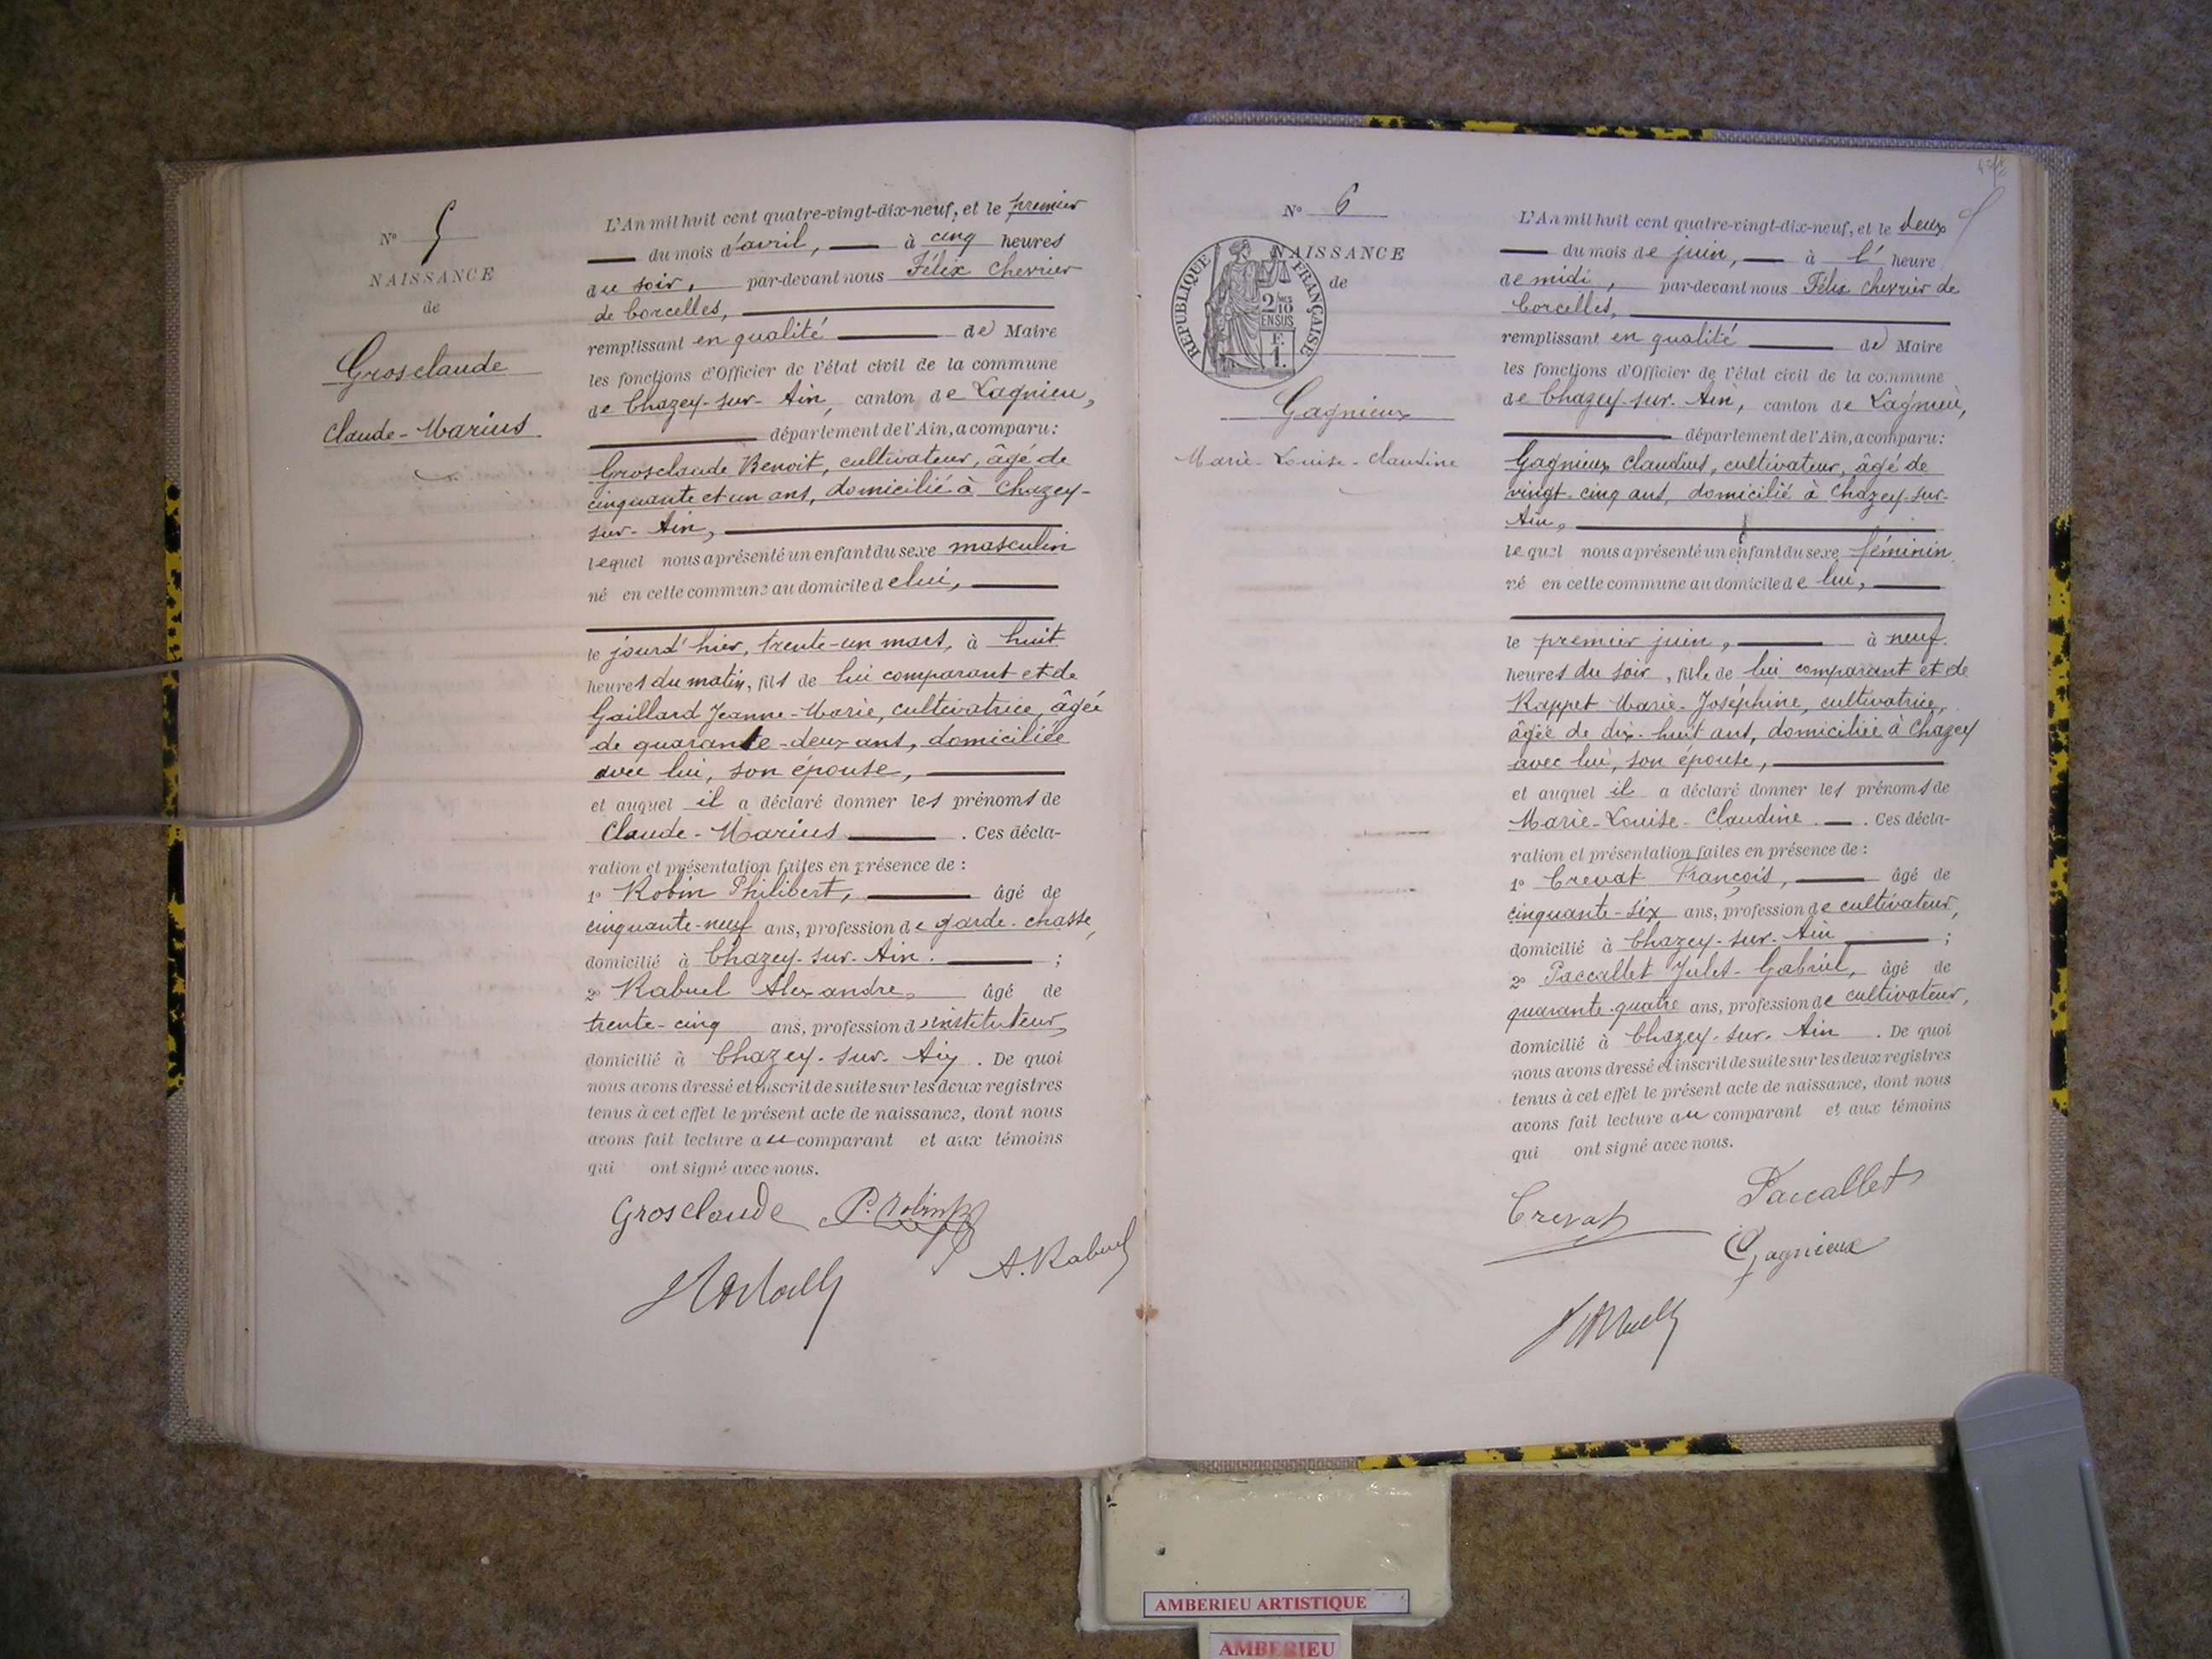 N° 5
NAISSANCE
de
Grosclaude
Claude-Marius
L'An mil huit cent quatre-vingt-dix-neuf, et le premier
du mois d'avril, à cinq heures
du soir, par-devant nous Félix Chevrier
de Corcelles,
remplissant en qualité de Maire
les fonctions d'Officier de l'état civil de la commune
de Chazey-sur-Ain, canton de Lagnieu,
département de l'Ain, a comparu:
Grosclaude Benoit, cultivateur, âgé de
cinquante et un ans, domicilié à Chazey-
sur-Ain,
lequel nous a présenté un enfant du sexe masculin
né en cette commune au domicile de lui,
le jourd'hier, trente-un mars, à huit
heures du matin, fils de lui comparant et de
Gaillard Jeanne-Marie, cultivatrice, âgée
de quarante-deux ans, domiciliée
avec lui, son épouse,
et auquel il a déclaré donner les prénoms de
Claude-Marius. Ces décla-
ration et présentation faites en présence de :
1° Robin Philibert, âgé de
cinquante-neuf ans, profession de garde-chasse,
domicilié à Chazey-sur-Ain. ;
2° Rabuel Alexandre, âgé de
trente-cinq ans, profession d'instituteur,
domicilié à Chazey-sur-Ain. De quoi
nous avons dressé et inscrit de suite sur les deux registres
tenus à cet effet le présent acte de naissance, dont nous
avons fait lecture au comparant et aux témoins
qui ont signé avec nous.
Grosclaude P. Robin
A. Rabuel
N° 6
NAISSANCE
de
RÉPUBLIQUE FRANÇAISE
2/10
EN SUS
F.
1.
Gagnieux
Marie-Louise-Claudine
L'An mil huit cent quatre-vingt-dix-neuf, et le deux
du mois de juin, à l' heure
de midi, par-devant nous Félix Chevrier de
Corcelles,
remplissant en qualité de Maire
les fonctions d'Officier de l'état civil de la commune
de Chazey-sur-Ain, canton de Lagnieu,
département de l'Ain, a comparu:
Gagnieux Claudius, cultivateur, âgé de
vingt-cinq ans, domicilié à Chazey-sur-
Ain,
lequel nous a présenté un enfant du sexe féminin
né en cette commune au domicile de lui,
le premier juin, à neuf
heures du soir, fille de lui comparant et de
Rappet Marie-Joséphine, cultivatrice,
âgée de dix-huit ans, domiciliée à Chazey
avec lui, son épouse,
et auquel il a déclaré donner les prénoms de
Marie-Louise-Claudine. Ces décla-
ration et présentation faites en présence de :
1° Crevat François, âgé de
cinquante-six ans, profession de cultivateur,
domicilié à Chazey-sur-Ain ;
2° Paccallet Jules-Gabriel, âgé de
quarante-quatre ans, profession de cultivateur,
domicilié à Chazey-sur-Ain. De quoi
nous avons dressé et inscrit de suite sur les deux registres
tenus à cet effet le présent acte de naissance, dont nous
avons fait lecture au comparant et aux témoins
qui ont signé avec nous.
Paccallet
Crevat
Gagnieux
AMBERIEU ARTISTIQUE
AMBERIEU